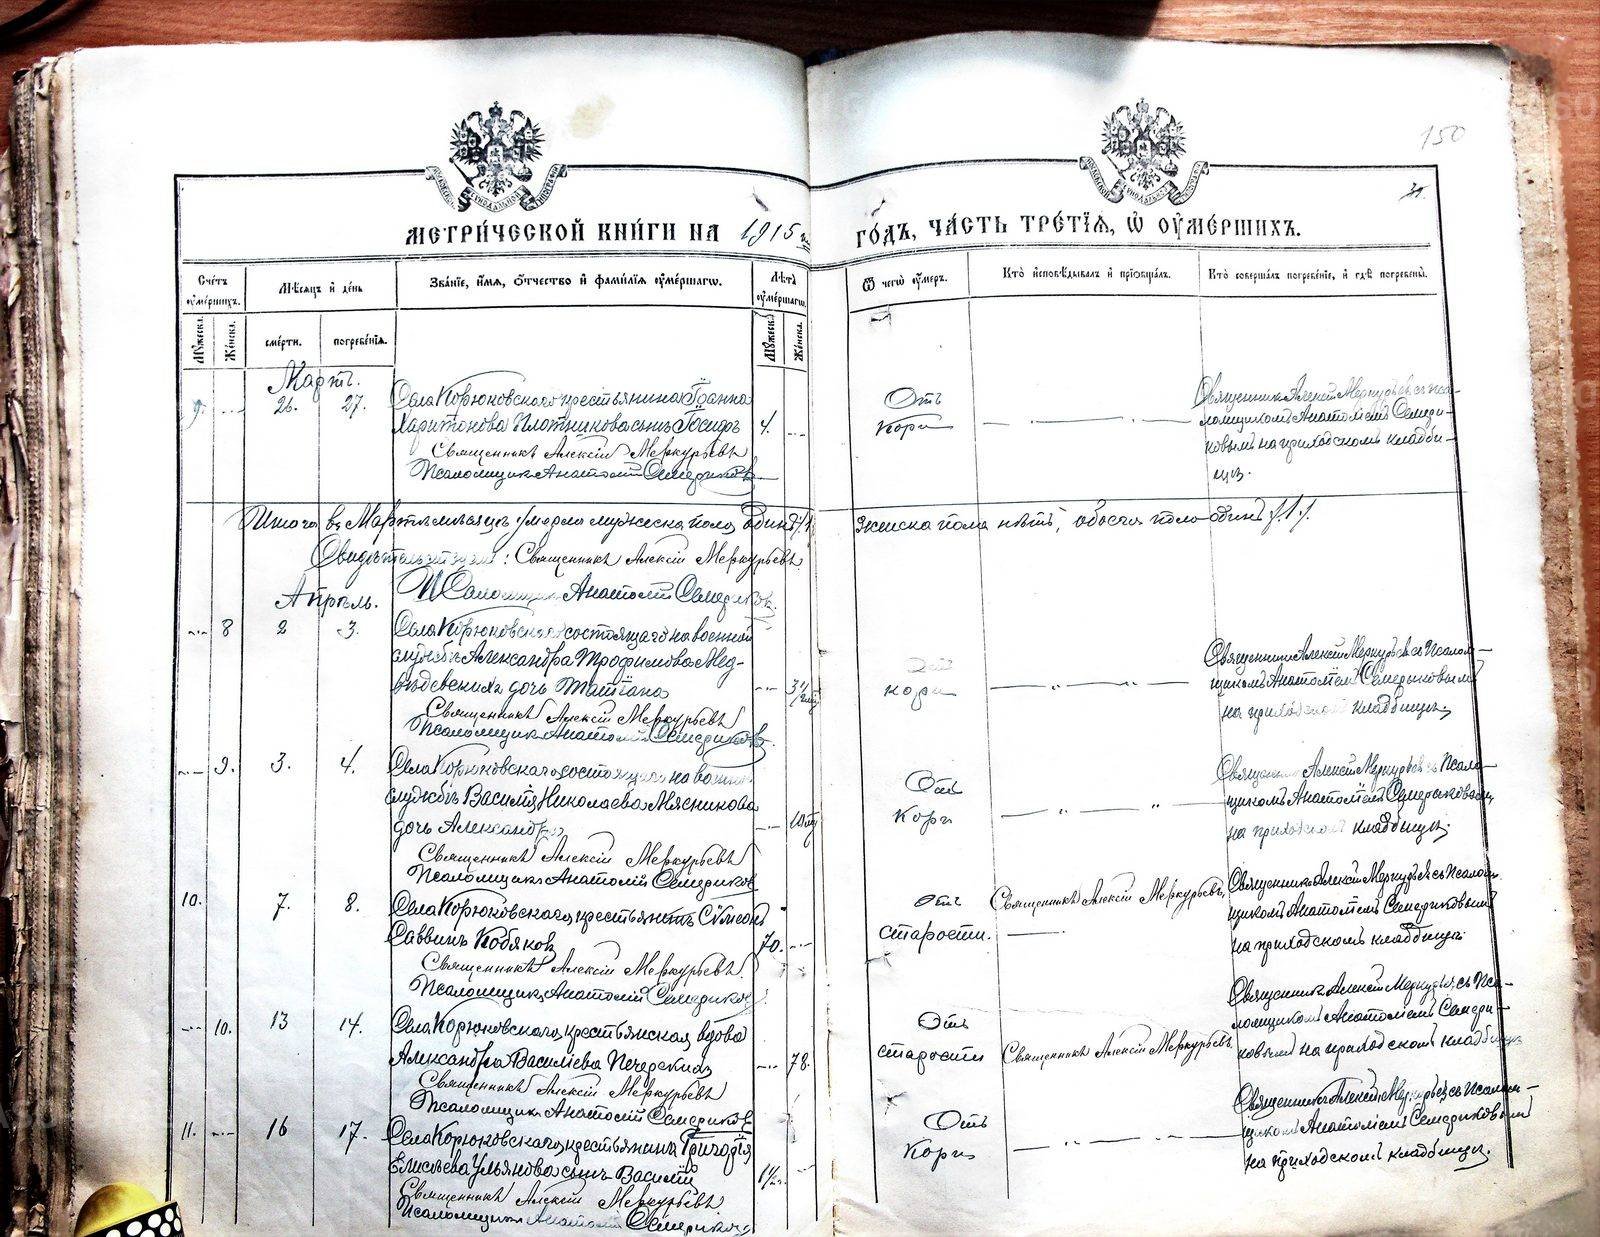 150
31.
МЕТРИ́ЧЕСКОЙ КНИ́ГИ НА 1915 г. ГО́ДЪ, ЧА́СТЬ ТРЕ́ТІѦ, Ѡ҆ ОУ҆МЕ́РШИХЪ.
Сче́тъ оу҆ме́ршихъ.
Мѣ́сѧцъ и҆ де́нь
Зва́нїе, и҆́мѧ, ѻ҆́тчество и҆ фами́лїѧ оу҆ме́ршагѡ.
Лѣ́тъ оу҆ме́ршагѡ.
Ѿ чегѡ̀ оу҆́меръ.
Кто̀ и҆сповѣ́дывалъ и҆ прїѡбща́лъ.
Кто̀ соверша́лъ погребе́нїе, и҆ гдѣ̀ погребены̀.
Мꙋ́жеска.
Же́нска.
сме́рти.
погребе́нїѧ.
Мꙋ́жеска.
Же́нска.
Мартъ.
9. 26. 27.
Села Корюковскаго крестьянина Іоанна
Харитонова Плотникова сынъ Іосифъ
4.
Священникъ Алексій Меркурьевъ
Псаломщикъ Анатолій Семериковъ
Отъ
кори
Священникъ Алексій Меркурьевъ съ пса-
ломщикомъ Анатоліемъ Семери-
ковымъ на приходскомъ кладби-
щѣ.
Итого въ Мартѣ мѣсяцѣ умерло мужеска пола одинъ /1/
женска пола нѣтъ, обоего пола одинъ /1/.
Свидѣтельствуемъ: Священникъ Алексій Меркурьевъ
Псаломщикъ Анатолій Семериковъ
Апрѣль.
8 2 3.
Села Корюковскаго состоящаго на военной
службѣ Александра Трофимова Мед-
вѣдевскихъ дочь Татіана
Священникъ Алексій Меркурьевъ
Псаломщикъ Анатолій Семериковъ
Отъ
кори
Священникъ Алексій Меркурьевъ съ Псалом-
щикомъ Анатоліемъ Семериковымъ
на приходскомъ кладбищѣ.
9. 3. 4.
Села Корюковскаго состоящаго на военной
службѣ Василія Николаева Мясникова
дочь Александра
Священникъ Алексій Меркурьевъ
Псаломщикъ Анатолій Семериковъ
Отъ
кори
Священникъ Алексій Меркурьевъ съ Псалом-
щикомъ Анатоліемъ Семериковымъ
на приходскомъ кладбищѣ.
10. 7. 8.
Села Корюковскаго крестьянинъ Сѵмеонъ
Саввинъ Кобяковъ
70.
Священникъ Алексій Меркурьевъ
Псаломщикъ Анатолій Семериковъ
Отъ
старости.
Священникъ Алексій Меркурьевъ
Священникъ Алексій Меркурьевъ съ Псалом-
щикомъ Анатоліемъ Семериковымъ
на приходскомъ кладбищѣ.
10. 13 14.
Села Корюковскаго крестьянская вдова
Александра Василіева Печерскихъ
78.
Священникъ Алексій Меркурьевъ
Псаломщикъ Анатолій Семериковъ
Отъ
старости
Священникъ Алексій Меркурьевъ
Священникъ Алексій Меркурьевъ съ Пса-
ломщикомъ Анатоліемъ Семери-
ковымъ на приходскомъ кладбищѣ
11. 16 17.
Села Корюковскаго крестьянина Григорія
Елисѣева Ульянова сынъ Василій
1 1/2
Священникъ Алексій Меркурьевъ
Псаломщикъ Анатолій Семериковъ
Отъ
кори
Священникъ Алексій Меркурьевъ съ Псалом-
щикомъ Анатоліемъ Семериковымъ
на приходскомъ кладбищѣ.